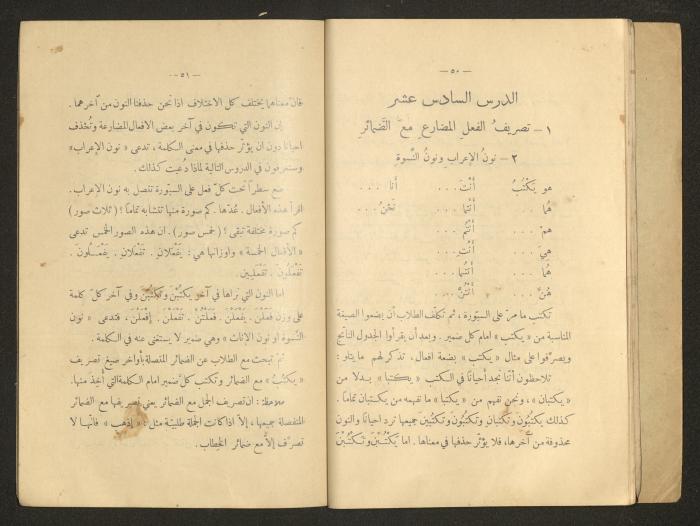 — ٥٠ —
الدرس السادس عشر
١ – تصريفُ الفعلِ المضارعِ مَعَ الضَّمائرِ
٢ – نونُ الإعرابِ ونونُ النِّسوةِ
هو يَكتُبُ أَنْتَ . . . أنا . . .
هُما . . . أَنتُما . . . نَحْنُ . . .
همْ . . . أَنْتُم . . .
هيَ . . . أَنْتِ . . .
هُما . . . أَنْتُما . . .
هُنَّ . . . أَنْتُنَّ . . .
تكتب ما مرّ على السبّورة ، ثم تكلّف الطلاب أن يضعوا الصيغة
المناسبة من « يكتب » امام كل ضمير . وبعد أن يقرأوا الجدول الناتج
ويصرّفوا على مثال « يكتب » بضعة افعال ، تذكر لهم ما يتلو :
تلاحظون أنّنا نجد أحياناً في الكتب « يكتبا » بدلا من
« يكتبان » ، ونحن نفهم من « يكتبا » ما نفهمه من يكتبان تماماً .
كذلك يكتُبُونَ وتكتبان وتَكتُبُونَ وتكتُبين جميعها ترد احيانا والنون
محذوفة من آخرها، فلا يؤثّر حذفها في معناها . اما يَكْتُبْنَ وتَكْتُبْنَ
— ٥١ —
فانّ معناهما يختلف كل الاختلاف اذا نحن حذفنا النون من آخرهما .
إن النون التي تكون في آخر بعض الافعال المضارعة وتُحذف
احيانا دون ان يؤثّر حذفها في معنى الكلمة ، تدعى « نون الإعراب»
وستعرفون في الدروس التالية لماذا دُعيت كذلك .
ضع سطراً تحت كلّ فعل على السبّورة تتصل به نون الاعراب.
اقرأ هذه الأفعال . عُدّها . كم صورة منها تتشابه تماماً ؟ ( ثلاث صور )
كم صورة مختلفة تبقى ؟ ( خمس صور ) . ان هذه الصور الخمس تدعى
« الأفعال الخمسة » واوزانها هي : يَفْعَلانِ . تَفْعَلانِ . يَفْعَلُونَ .
تَفْعَلُونَ . تَفْعَلينَ.
اما النون التي نراها في آخر يَكتُبْنَ وتَكْتُبْنَ وفي آخر كلّ كلمة
على وزن فَعَلْنَ . يَفْعَلْنَ . فَعَلْتُنَّ . تَفْعَلْنَ . إفْعَلْنَ ، فتدعى « نون
النِّسوة او نون الإناث » وهي ضمير لا يستغنى عنه في الكلمة .
ثمّ تبحث مع الطلاب عن الضمائر المتصلة بأواخر صيغ تصريف
« يكتُبُ » مع الضمائر وتكتب كلّ ضمير امام الكلمة التي أُخِذَ منها.
ملاحظة : ان تصريف الجمل مع الضمائر يعني تصريفها مع الضمائر
المنفصلة جميعها ، إلاّ اذا كانت الجملة طلبيّة مثل : « إذهب » فانّها لا
تصرّف إلاّ مع ضمائر الخِطاب.